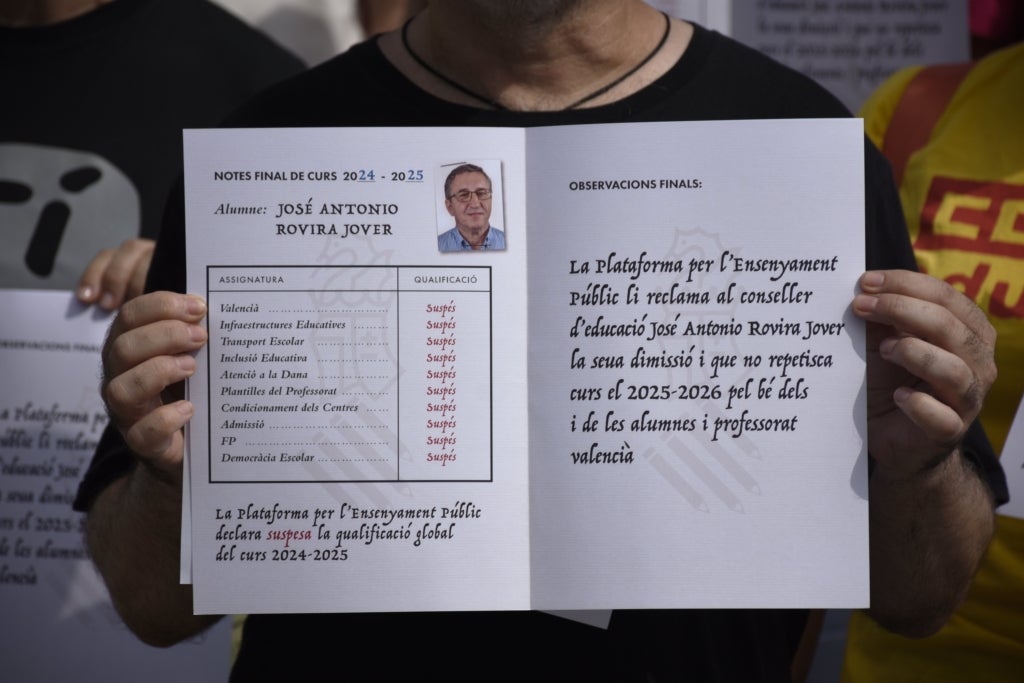 NOTES FINAL DE CURS 2024 - 2025
Alumne: JOSÉ ANTONIO
ROVIRA JOVER
ASSIGNATURA QUALIFICACIÓ
Valencià ........................ Suspés
Infraestructures Educatives ........ Suspés
Transport Escolar ................. Suspés
Inclusió Educativa ................ Suspés
Atenció a la Dana ................ Suspés
Plantilles del Professorat .......... Suspés
Condicionament dels Centres ...... Suspés
Admissió ......................... Suspés
FP ............................... Suspés
Democràcia Escolar ................ Suspés
La Plataforma per l'Ensenyament Públic
declara suspesa la qualificació global
del curs 2024-2025
OBSERVACIONS FINALS:
La Plataforma per l'Ensenyament
Públic li reclama al conseller
d'educació José Antonio Rovira Jover
la seua dimissió i que no repetisca
curs el 2025-2026 pel bé dels
i de les alumnes i professorat
valencià
OBSERVACIONS FINALS